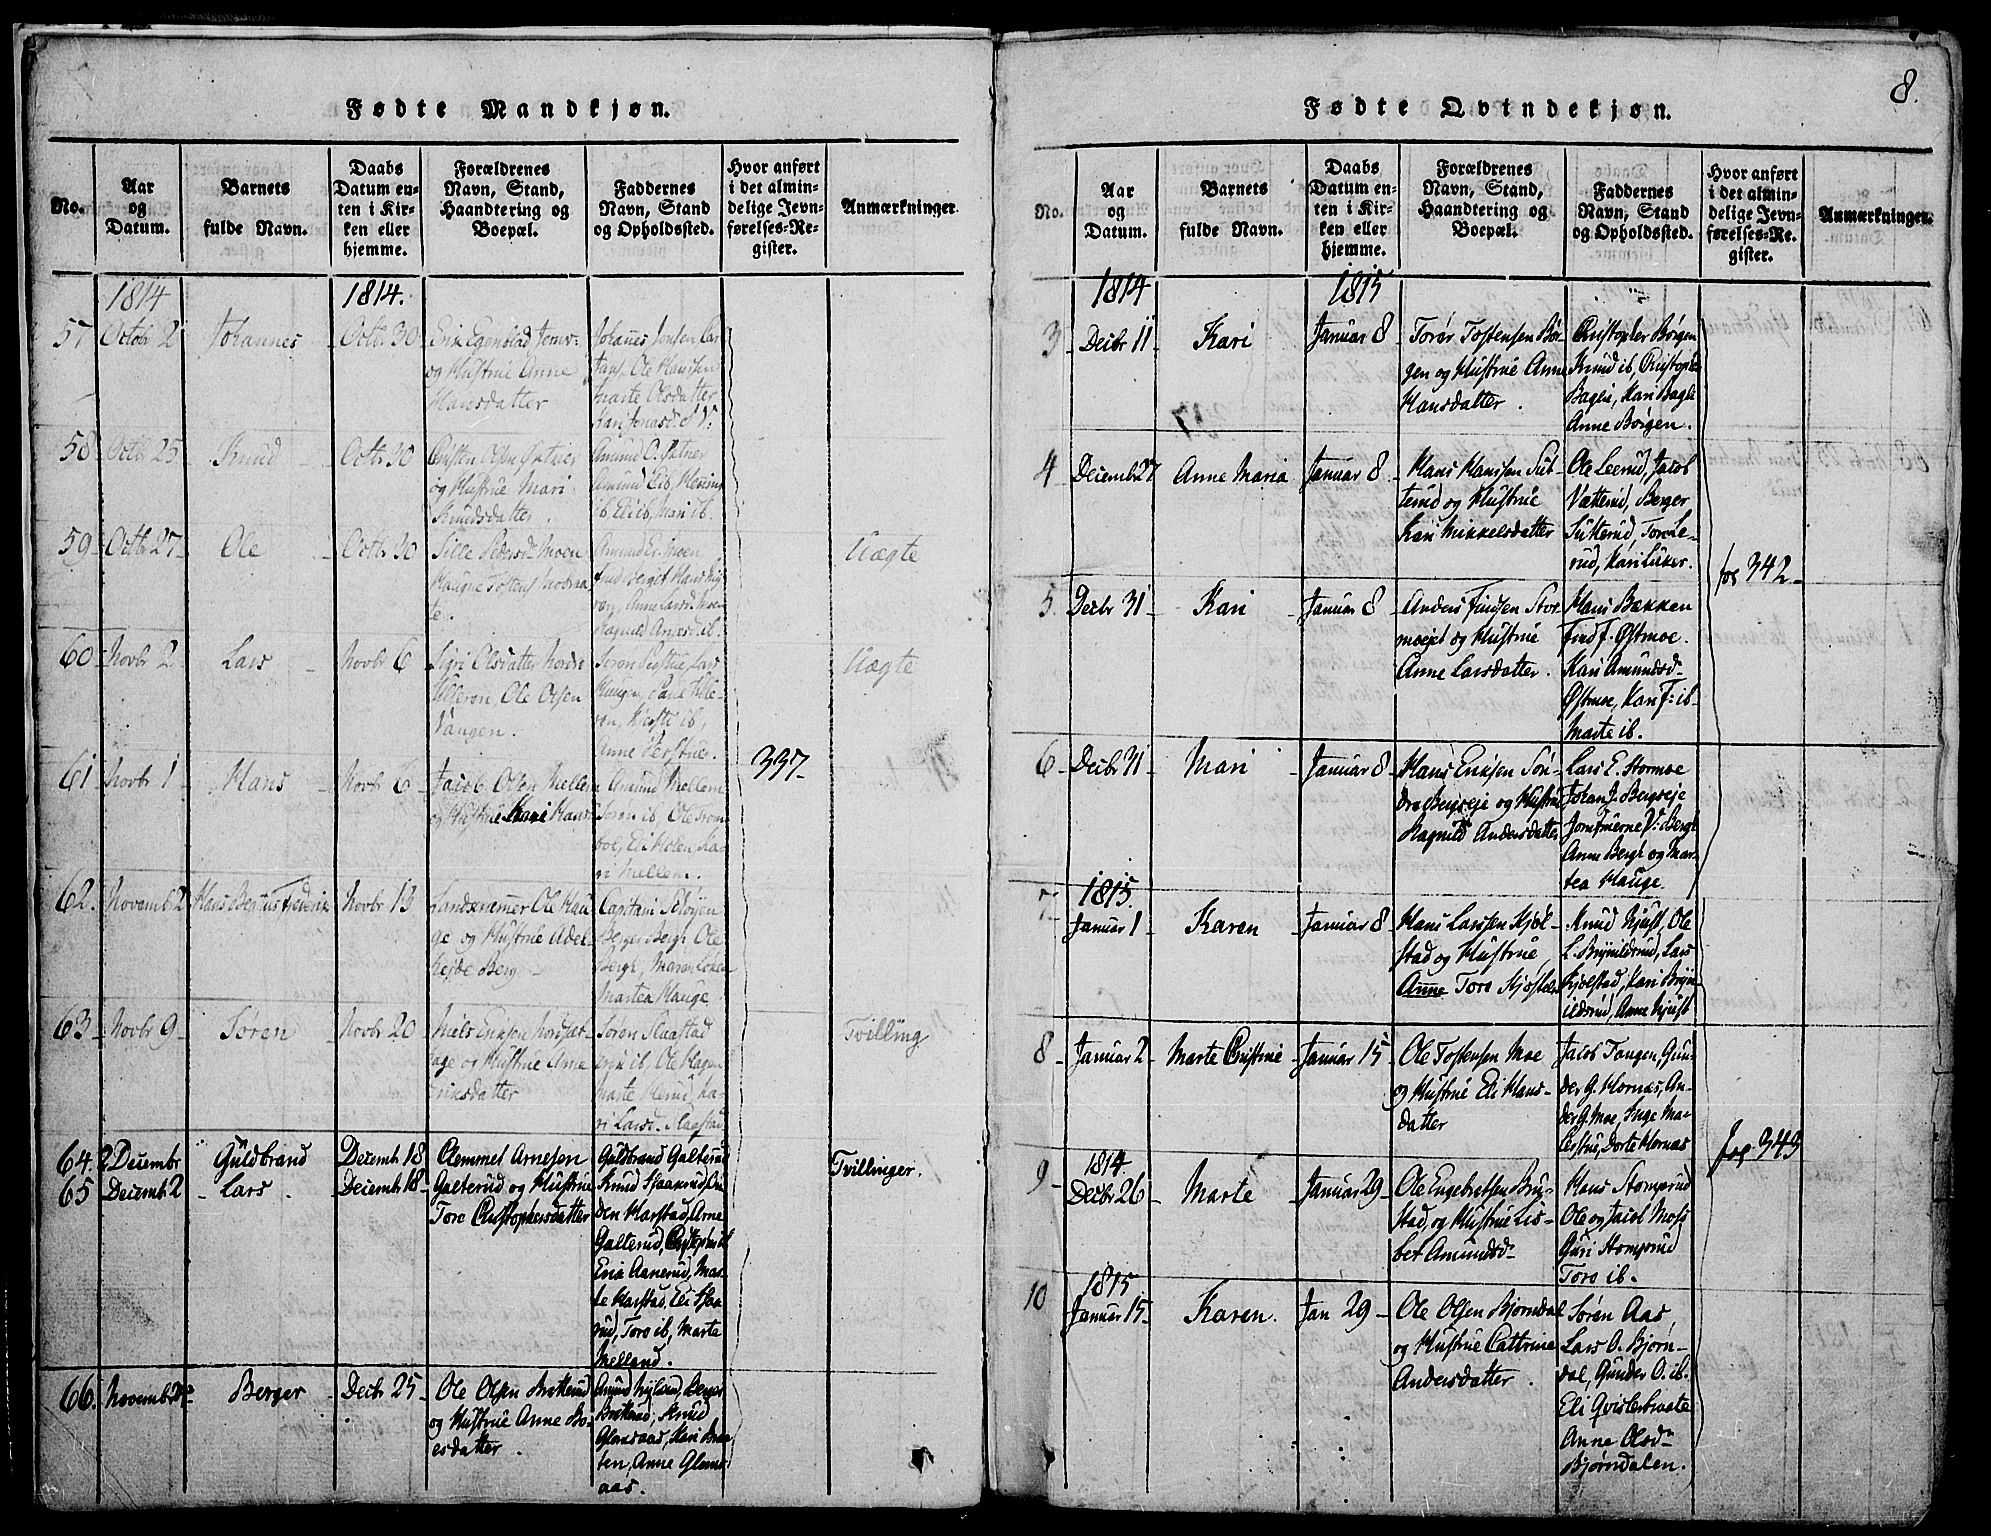 8.
Fødte Mandkjøn.
No.
Aar
og
Datum.
Barnets
fulde Navn.
Daabs
Datum en-
ten i Kir-
ken eller
hjemme.
Forældrenes
Navn, Stand,
Haandtering og
Boepæl.
Faddernes
Navn, Stand
og Opholdssted.
Hvor anført
i det almin-
delige Jevn-
førelses-Re-
gister.
Anmærkninger.
1814
1814.
57
Octobr 2
Johannes
Octbr 30
og Hustrue Anne
Hansdatter
Johannes Jonsen
Ole Hanssen
Marte Olsdatter
58
Octbr 25
Knud
Octbr 30
Christen Olsen
og Hustrue Mari
Knudsdatter.
Amund
ib Eli ib, Mari ib.
59
Octbr 27
Ole
Octbr 30
Sille Pedersdr Moen
Amund Er. Moen
Uægte
60
Novbr 2
Lars
Novbr 6
Sigri Olsdatter Nordre
Ole Olsen
Vangen.
Søren Perstue, Lars
Haugen,
Kierste ib,
Anne Perstue.
Uægte
61
Novbr 1
Hans
Novbr 6
Jacob Olsen Mellem
og Hustrue Kari Hans
Amund Mellem
Søren ib, Ole
Eli Holen, Ka-
ri Mellem.
337
62.
Novemb 2
Hans Bergius Frederik
Novbr 13
Ole Hau
ge og Hustrue Adel
hejde Berg
Capitain
Berger Bergh, Ole
Bergh, Maren
Martea Hauge
63
Novbr 9
Søren
Novbr 20
Niels Eriksen
og Hustrue Anne
Eriksdatter
Søren Slaastad
Erik ib, Ole Hagen
Marte
ri Larsd. Slaastad
Tvilling
64.
2 Decembr
Guldbrand
Decemb 18
65
Decemb 2
Lars.
Decemb 18
Clemmet Arnesen
Galterud og Hustrue
Toro Christophersdatter
Guldbrand Galterud
Knud
den Harstad, Arne
Galterud, Christopher ib
Eria Aanerud, Mar-
te Harstad, Eli
rud, Toro ib, Marte
Melland.
Tvillinger.
66.
Novemb
Berger
Decbr 25
Ole Olsen Brøtterud
og Hustrue Anne Bo-
esdatter.
Knud
Kari Braa
ten, Anne Glams-
aas.
Fødte Qvindekjøn.
No.
Aar
og
Datum.
Barnets
fulde Navn.
Daabs
Datum en-
ten i Kir-
ken eller
hjemme.
Forældrenes
Navn, Stand,
Haandtering og
Boepæl.
Faddernes
Navn, Stand
og Opholdssted.
Hvor anført
i det almin-
delige Jevn-
førelses-Re-
gister.
Anmærkninger.
1814
1815
3
Decbr 11
Kari
Januar 8
Torer Tostensen Bør-
gen og Hustrue Anne
Hansdatter.
Christopher Børgen
Knud ib, Christopher
Bagli, Kari Bagli
Anne Børgen.
4
Decemb 27
Anne Maria
Januar 8
Hans Hanssen Sut-
terud og Hustrue
Kari Mikkelsdatter
Ole Leerud, Jacob
Vætterud, Berger
Sutterud, Toro Le-
rud, Kari Luker.
for 342
5.
Decbr 31
Kari
Januar 8
Anders Findsen Stor
moejet og Hustrue
Anne Larsdatter.
Hans Bækken
Find F. Østmoe.
Kari Amundsdr
Østmoe, Kari F: ib
Marte ib.
6
Decbr 31
Mari
Januar 8
Hans Eriksen Søn-
dre Bergseje og Hustrue
Ragnild Andersdatter
Lars E. Stormoe
Johan J. Bergseje
Jomfruerne P: Bergh
Anne Bergh og Mar-
tea Hauge.
7
1815.
Januar 1
Karen
Januar 8
Hans Larssen Kjøl-
stad og Hustrue
Anne Toro
Knud Njust, Ole
L. Brynildsrud, Lars
Kjølstad, Kari Bryn
ildsrud, Anne Njust
8
Januar 2
Marte Christine
Januar 15
Ole Tostensen Moe
og Hustrue Eli Hans-
datter
Jacob Tangen, Gun-
der G. Hornæs, An-
der G. Moe, Inge Ma-
Dorte Hornæs
for 343
9
1814
Decbr 26
Marte
Januar 29
Ole Engebretsen Bru-
stad, og Hustrue Lis-
bet Amundsdr
Hans Stomprud
Ole og Jacob Moss
Guri Stomprud
Toro ib.
10
1815
Januar 15
Karen.
Jan 29
Ole Olsen Bjørndal
og Hustrue Cattrine
Andersdatter.
Søren Aas,
Lars O. Bjørn-
dal, Gunder O. ib.
Eli Qvistenbraate
Anne Olsdr
Bjørndalen.